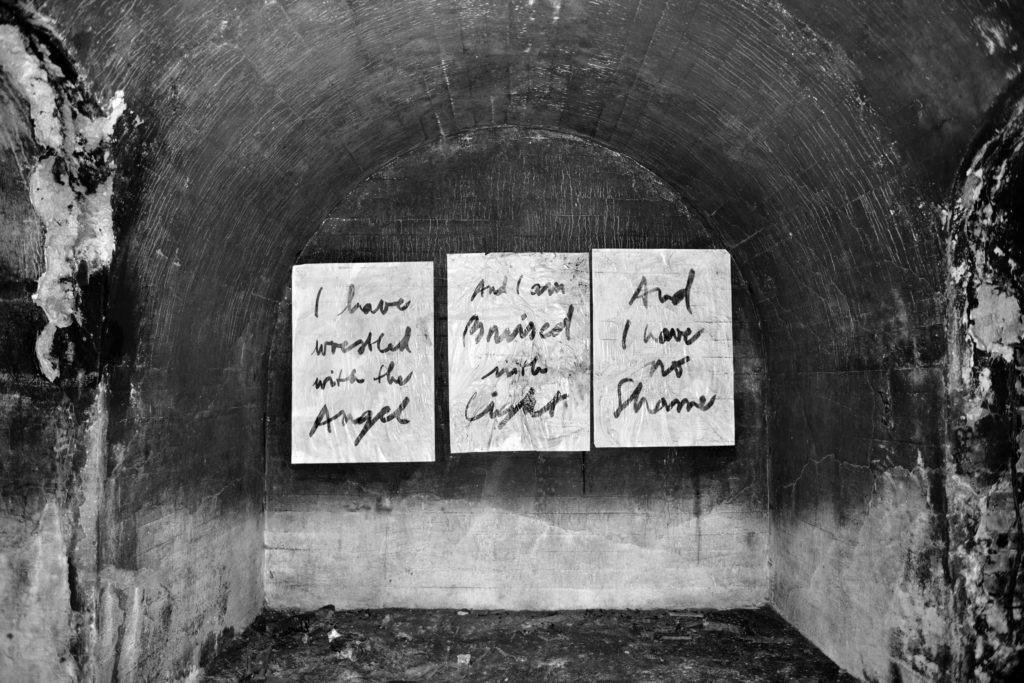 I have
wrestled
with the
Angel
And I am
Bruised
with
Light
And
I have
no
Shame